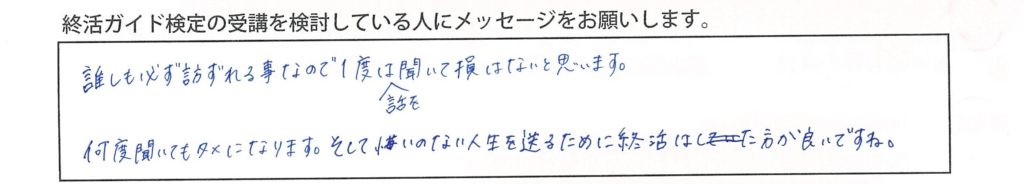 終活ガイド検定の受講を検討している人にメッセージをお願いします。
誰しも必ず訪ずれる事なので1度は聞いて損はないと思います。
話を
何度聞いてもタメになります。そして悔いのない人生を送るために終活はした方が良いですね。